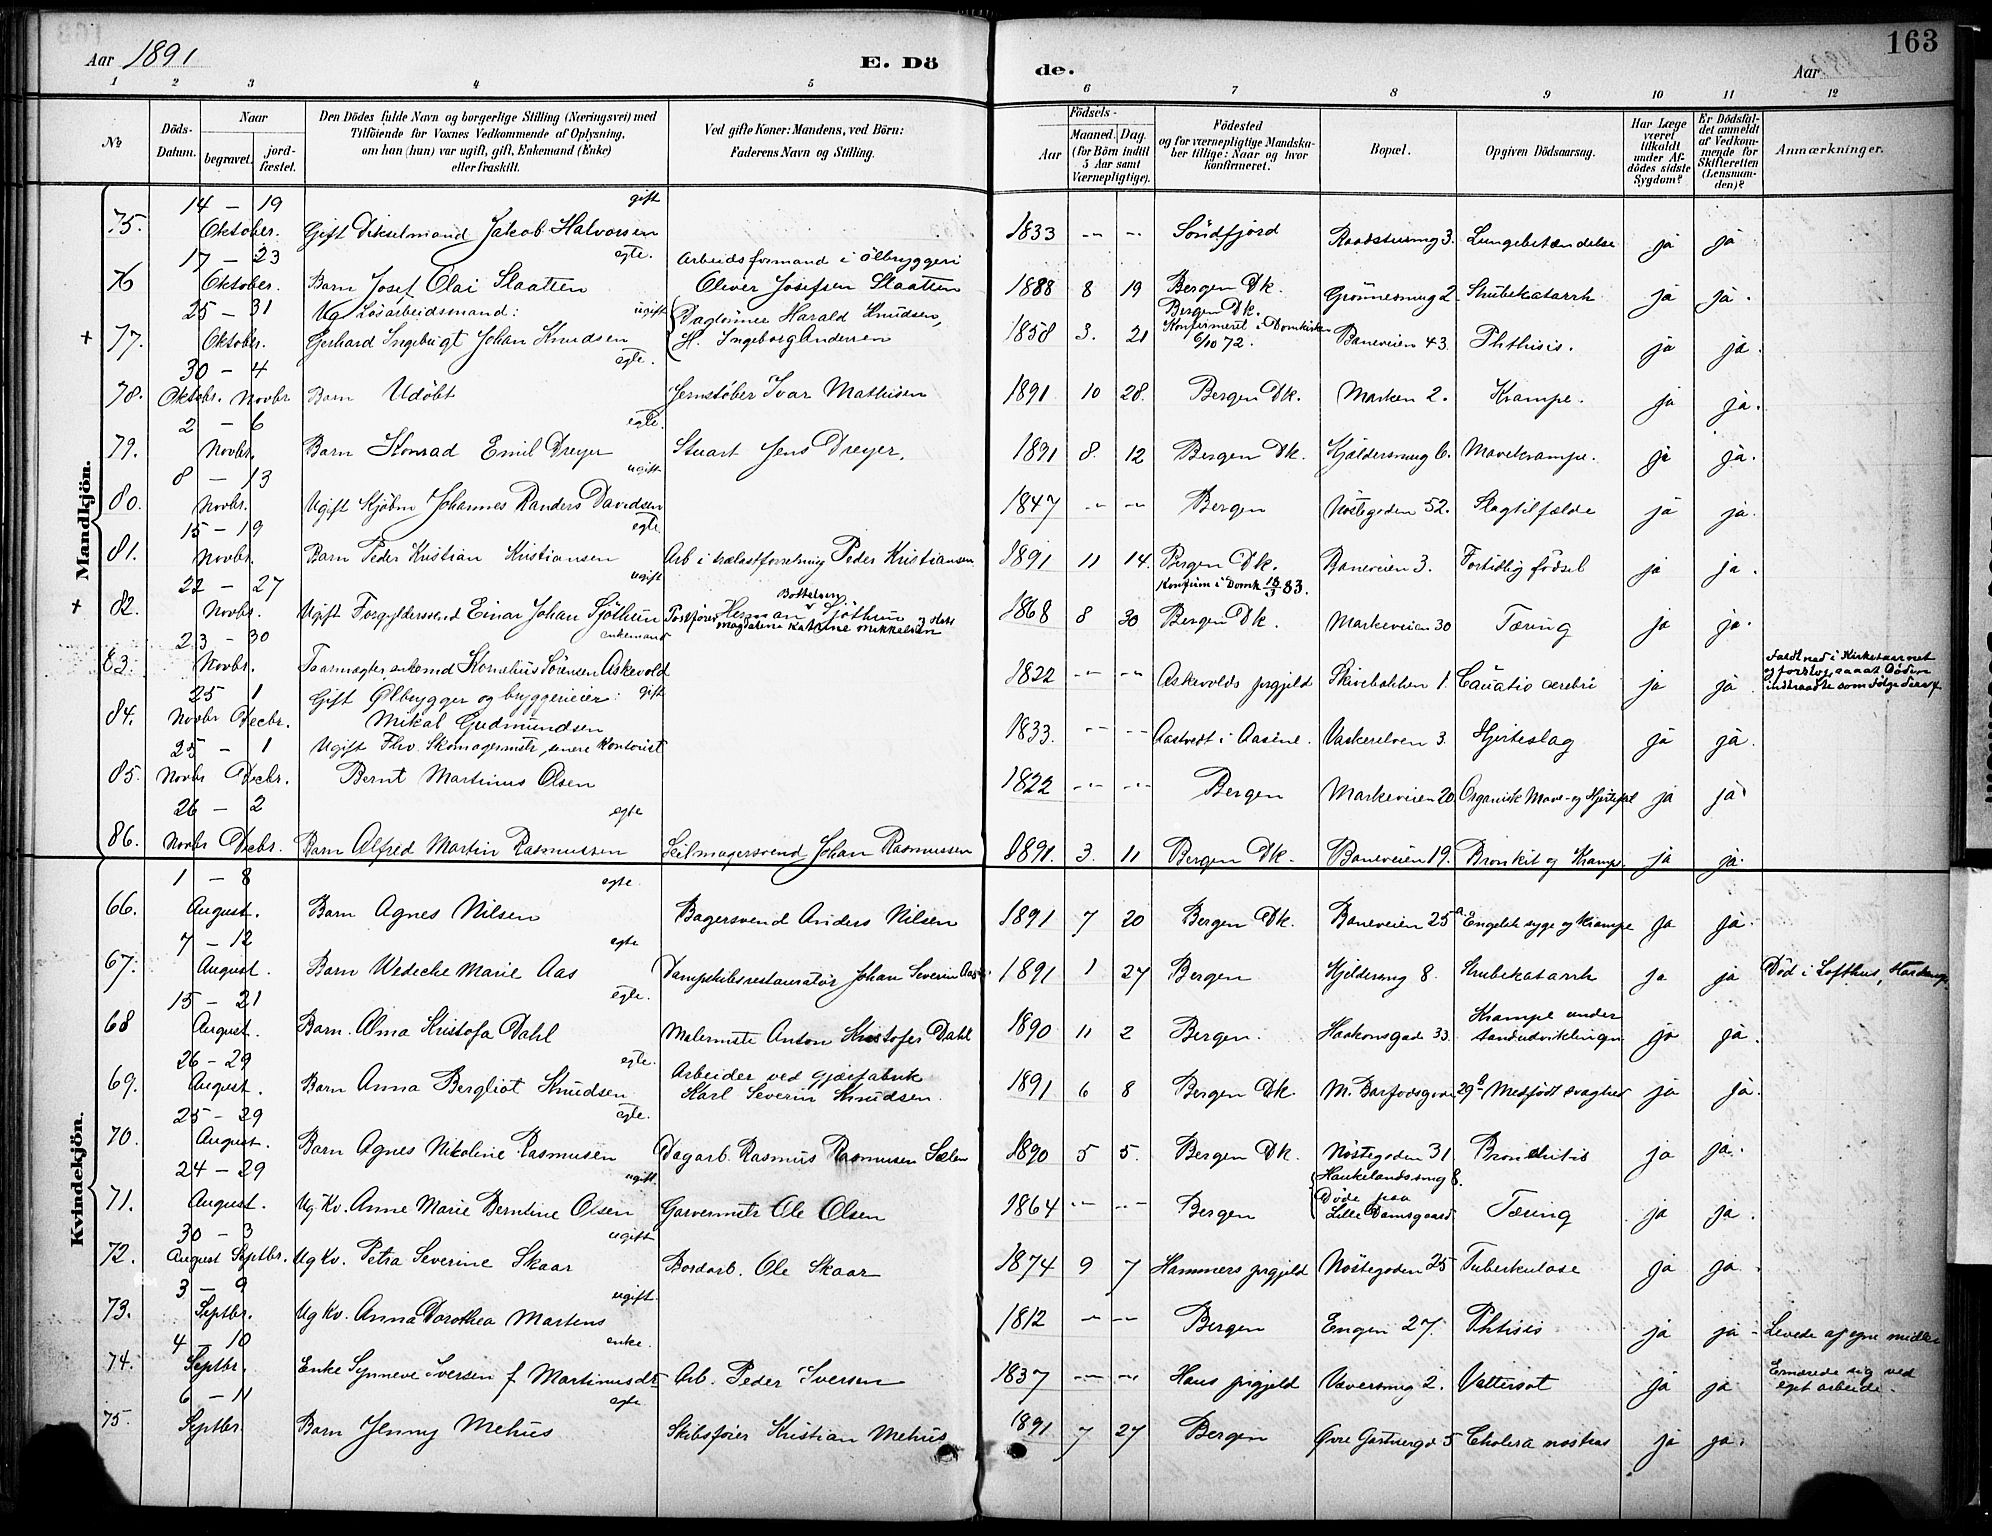 Aar 1891
E. Dö
de.
Aar
163
1 2 3 4 5 6 7 8 9 10 11 12
№
Döds-Datum.
Naar
begravet.
jordfæstet.
Den Dödes fulde Navn og borgerlige Stilling (Næringsvei) med
Tilföiende for Voxnes Vedkommende af Oplysning,
om han (hun) var ugift, gift, Enkemand (Enke)
eller fraskilt.
Ved gifte Koner: Mandens, ved Börn:
Faderens Navn og Stilling.
Födsels-
Aar
Maaned. Dag.
(for Börn indtil
5 Aar samt
Værnepligtige).
Födested
og for værnepligtige Mandskaber tillige: Naar og hvor
konfirmeret.
Bopæl.
Opgiven Dödsaarsag.
Har Læge været tilkaldt under Afdödes sidste Sygdom?
Er Dödsfaldet anmeldt af Vedkommende for Skifteretten (Lensmanden)?
Anmærkninger.
Mandkjön.
75. 14 – 19 Oktober. Gift Jakob Halvorsen gift 1833 -"- -"- Söndfjord 3. Lungebetændelse ja ja
76 17 – 23 Oktober. Barn Josef Olai Slaatten egte. Arbeidsformand i ölbryggeri Oliver Josefsen Slaatten 1888 8 19 Bergen Dk. Grönnesmug 2 Strubekatarrh ja ja.
+ 77. 25 – 31 Oktober. Ug Lösarbeidsmand: Gerhard Ingebrigt Johan Knudsen ugift Daglönner Harald Knudsen, H. Ingeborg Andersen 1858 3. 21 Bergen Dk. Konfirmeret i Domkirken 6/10 72. Baneveien 43. Phthisis. ja ja.
78. 30 – 4 Oktobr. Novbr Barn Udöbt egte. Jernstöber Ivar Mathisen 1891 10 28. Bergen Dk. Marken 2. Krampe. ja ja.
79. 2 – 6 Novbr. Barn Konrad Emil Dreyer egte. Stuart Jens Dreyer. 1891 8. 12 Bergen Dk. Kjeldersmug 6. Mavekrampe. ja ja.
80. 8 – 13 Novbr. Ugift Kjöbm Johannes Randers Davidsen ugift 1847 -"- -"- Bergen Nöstegaden 52. Slagtilfælde ja ja.
81. 15 – 19 Novbr. Barn Peder Kristian Kristiansen egte Arb i trælastforretning Peder Kristiansen 1891 11 14. Bergen Dk. Baneveien 3. Fortidlig födsel ja ja.
+ 82. 22 – 27 Novbr. Ugift Einar Johan Sjöthun ugift Herman Sjöthun Magdalene Katrine Mikkelsen 1868 8 30 Konfirm i Domk 83. Bergen Dk. Markeveien 30 Tæring ja ja.
83. 23 – 30 Novbr. Taarnvægter, enkemd Kornelius Sörensen Askevold enkemand 1822 -"- -"- Askevolds prgjeld Skivebakken 1. cerebri ja ja Faldt ned i Kirketaarnet
84. 25 1 Novbr Decbr. Gift Ölbrygger og bryggerieier: Mikal Gudmundsen gift 1833. -"- -"- Aastvedt i Aasene. Vaskerelven 3. Hjerteslag ja ja.
85. 25 – 1 Novbr Decbr. Ugift Fhv. Skomagermstr, senere Kontorist Bernt Martinus Olsen 1822 -"- -"- Bergen Markeveien 20. Organisk Mave- og Hjertefeil ja ja
86. 26 – 2 Novbr Decbr. Barn Alfred Martin Rasmussen egte Seilmagersvend Johan Rasmussen 1891. 3. 11 Bergen Dk. Baneveien 19. Bronkit og Krampe. ja ja.
Kvindekjön.
66. 1 – 8 August. Barn Agnes Nilsen egte. Bagersvend Anders Nilsen 1891 7 20 Bergen Dk. Baneveien 25 a Engelsk syge og Krampe ja ja.
67. 7 – 12 August. Barn Wedeche Marie Aas egte Dampskibsrestauratör Johan Severin Aas 1891 1 27 Bergen Kjeldersmug 8. Strubekatarrh ja ja Död i Lofthus, Hardanger
68 15 – 21 August. Barn. Alma Kristofa Dahl egte. Malermstr Anton Kristofer Dahl 1890 11 2 Bergen. Haakonsgad 33. Krampe under tandudviklingen ja ja.
69. 26 – 29 August. Barn Anna Bergliot Knudsen egte. Arbeider ved gjærfabrik Karl Severin Knudsen. 1891 6 8 Bergen Dk. 29 a Medfödt svaghed ja ja.
70. 25 – 29 August. Barn Agnes Nikoline Rasmusen egte. Dagarb. Rasmus Rasmusen Sælen 1890 5 5. Bergen Dk. Nöstegaden 31 Bronchitis ja ja.
71. 24 – 29 August. Ug Kv. Anne Marie Berntine Olsen ugift. Garvermstr Ole Olsen 1864 -"- -"- Bergen Haukelandssmug 8. Döde paa Lille Damsgaard Tæring ja ja.
72. 30 – 3 August Septbr. Ug Kv. Petra Severine Skaar ugift Bordarb. Ole Skaar 1874 9 7 Hammers prgjeld Nöstegaden 25 Tuberkulose ja ja.
73. 3 – 9 Septbr. Ug Kv. Anna Dorothea Martens ugift. 1812 -"- -"- Bergen Engen 27. Phtisis ja ja – Levede af egne midler
74. 4 – 10 Septbr. Enke Synneve Iversen f Martinusdr enke. Arb. Peder Iversen 1837 -"- -"- Haus prgjeld Vaversmug 2. Vattersot ja ja Ernærede sig ved eget arbeide.
75. 6 – 11 Septbr. Barn Jenny Mehus egte Skibsförer Kristian Mehus 1891 7 27 Bergen Övre 5 Cholera nostras ja ja.